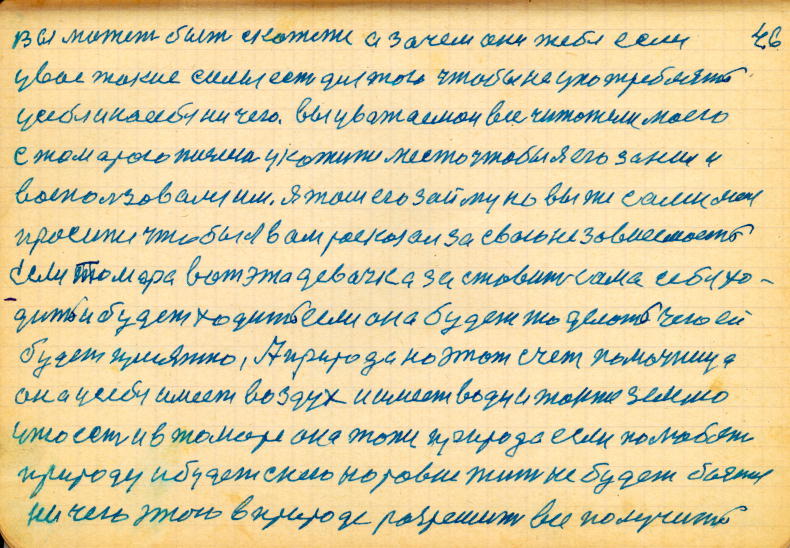 вы может быть скажете а зачем они тебе если 46
у вас такие силы есть для того чтобы не употреблять
у себя на себя ничего. вы уважаемои все читатели моего
с тамарого писма укажите место чтобы я его занял и
воспользовался им. Я там его займу но вы же сами мен
просите чтобы я вам росказал за свою независемость
если тамара вот эта девачка заставить сама себя хо-
дить и будет ходить если она будет то делать чего ей
будет приятно, А природа на этот счет помочница
она у себя имеет воздух и имеет воду и также землю
что есть и в тамаре она тоже природа если полюбить
природу и будет с нею наровне жить не будет боятся
ни чего этого в природе разрешит все получить